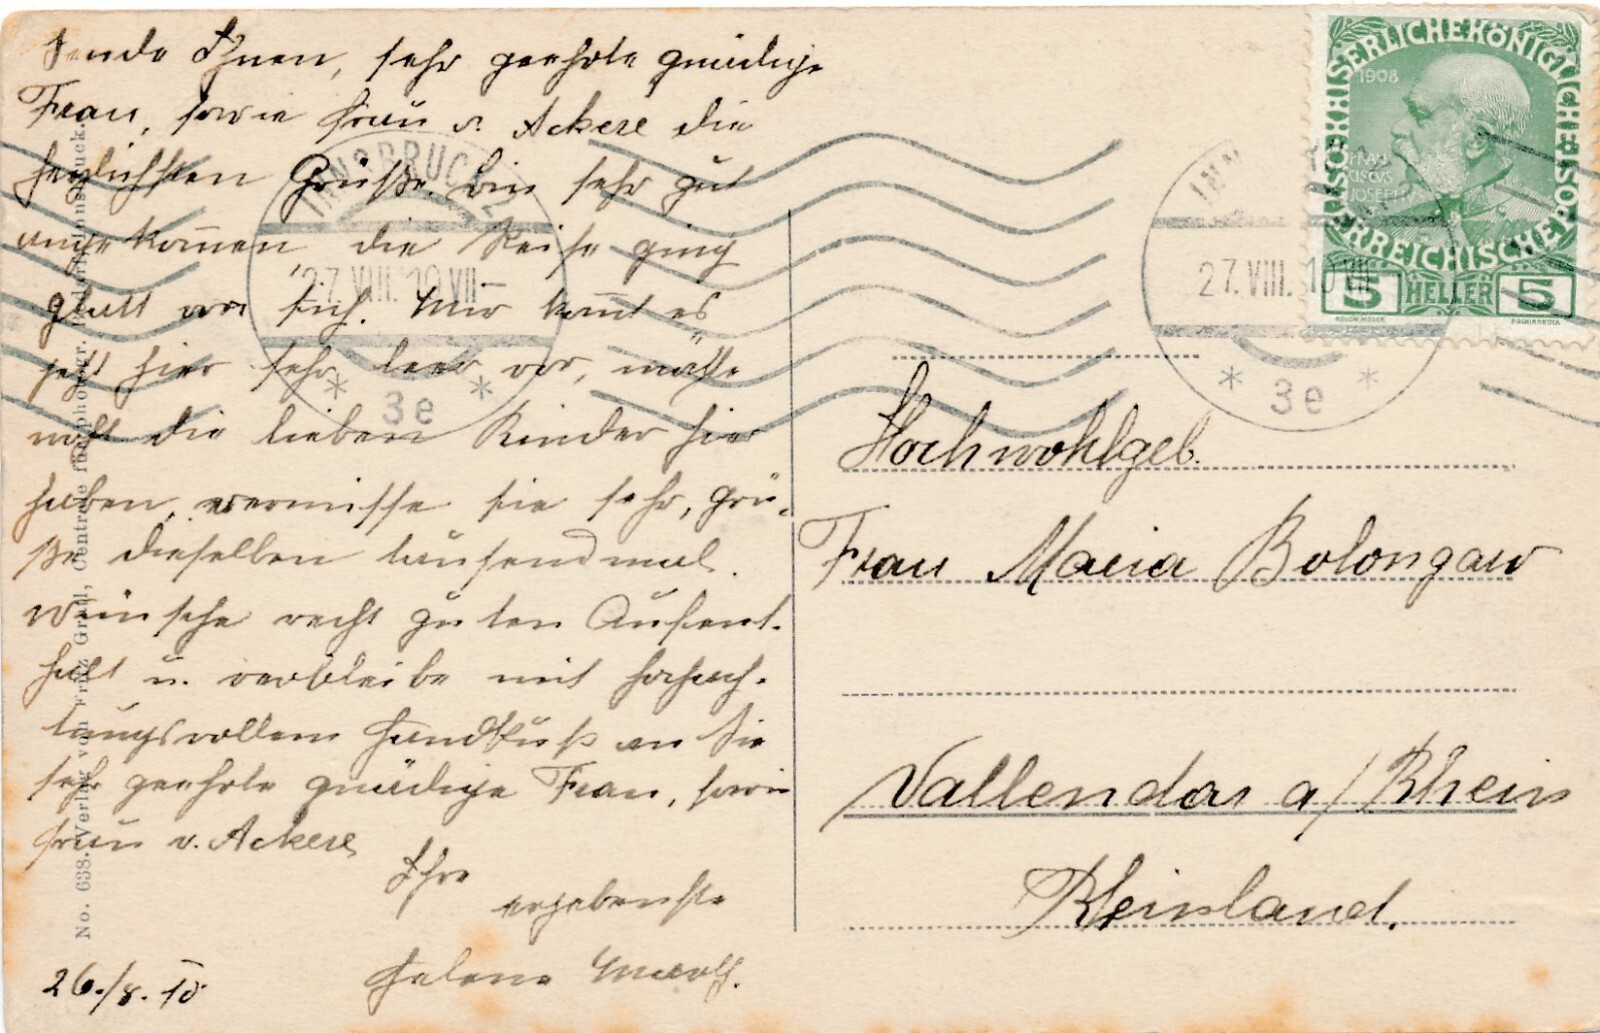 Sende Ihnen, sehr geehrte gnädige
Frau, sowie Frau v. Ackere die
herzlichsten Grüße. bin sehr gut
angekom̅en die Reise ging
glatt vor sich. Mir kom̅t es
jetzt hier sehr leer vor, möchte
noch die lieben Kinder hier
haben, vermisse sie sehr, grü-
ße dieselben tausendmal.
wünsche recht guten Aufent-
halt u. verbleibe mit hochach-
tungsvollem Handkuß an Sie
sehr geehrte gnädige Frau, sowie
Frau v. Ackere
Ihre
ergebenste
Helene
26./8. 10
No. 638. Verlag von Fritz Gratl, Centrale für photogr. Innsbruck.
INNSBRUCK 2
27.VIII.10 VII
* 3e *
INN
27.VIII.10 VII
* 3e *
KAISERLICHEKÖNIGLICHE
ÖSTERREICHISCHE POST
1908
FRAN
CISCVS
JOSEPH I
5 HELLER 5
Hochwohlgeb.
Frau Maria Bolongaro
Vallendar a/Rhein
Rheinland.